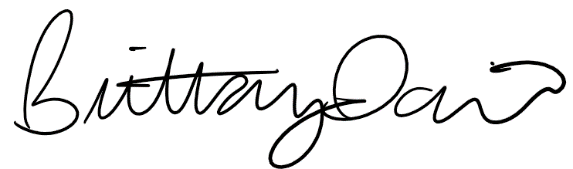 Brittany Davis